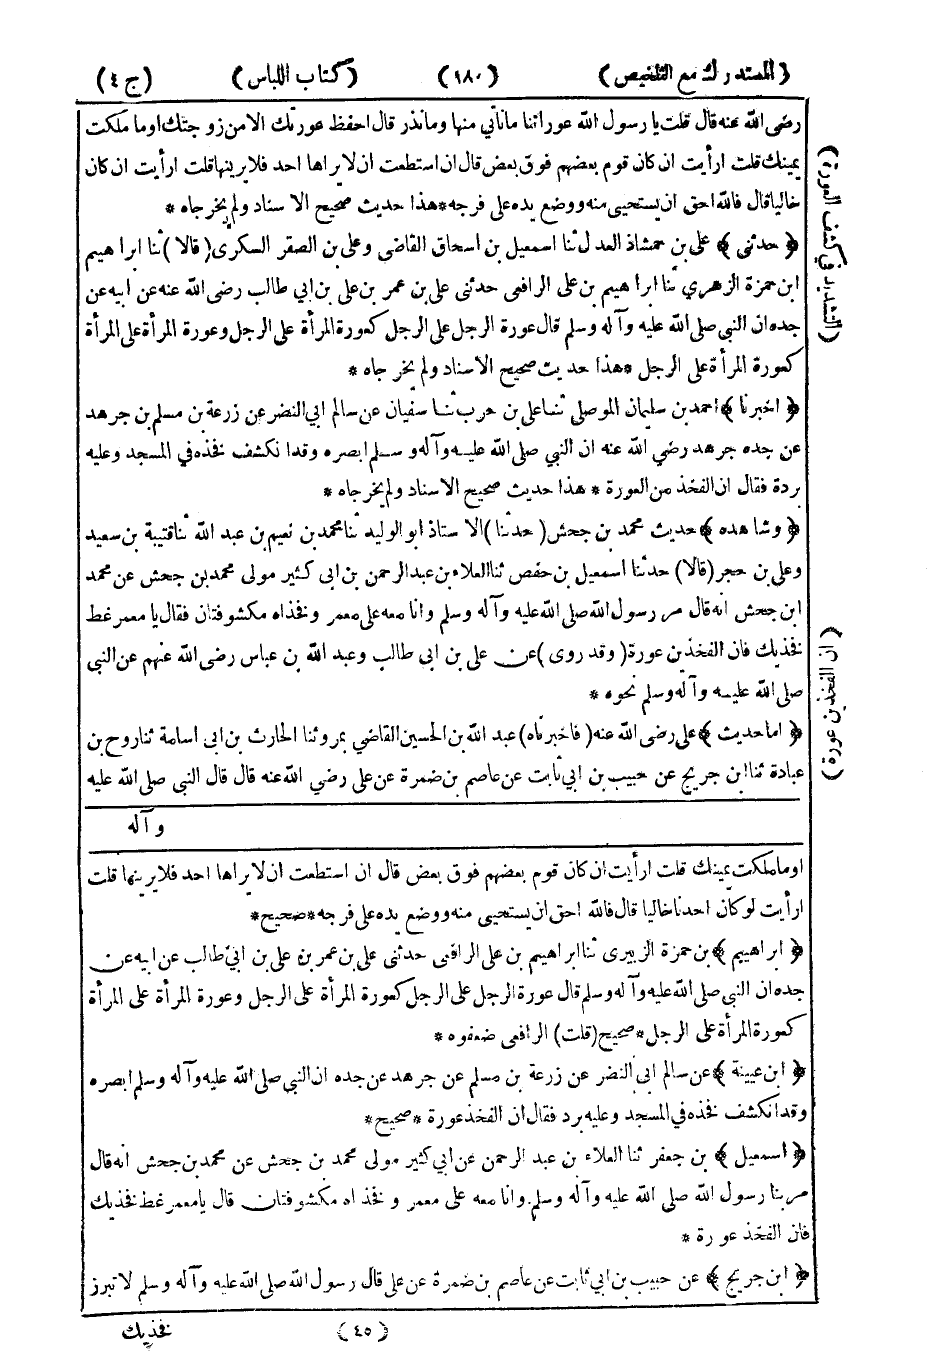 (المستدرك مع التلخيص) (١٨٠) (كتاب اللباس) (ج ٤)
رضى الله عنه قال قلت يا رسول الله عوراتنا ما نأتي منها وما نذر قال احفظ عورتك الا من زوجتك او ما ملكت
يمينك قلت ارأيت ان كان قوم بعضهم فوق بعض قال ان استطعت ان لا يراها احد فلا يرينها قلت ارأيت ان كان
خاليا قال فالله احق ان يستحيى منه ووضع يده على فرجه * هذا حديث صحيح الاسناد ولم يخرجاه *
﴿ حدثنى ﴾ على بن حمشاذ العدل ثنا اسمعيل بن اسحاق القاضي وعلى بن الصقر السكرى (قالا) ثنا ابراهيم
ابن حمزة الزهري ثنا ابراهيم بن على الرافعى حدثنى على بن عمر بن على بن ابي طالب رضى الله عنه عن ابيه عن
جده ان النبي صلى الله عليه وآله وسلم قال عورة الرجل على الرجل كعورة المرأة على الرجل وعورة المرأة على المرأة
كعورة المرأة على الرجل * هذا حديث صحيح الاسناد ولم يخرجاه *
﴿ اخبرنا ﴾ احمد بن سليمان الموصلي ثنا على بن حرب ثنا سفيان عن سالم ابي النضر عن زرعة بن مسلم بن جرهد
عن جده جرهد رضي الله عنه ان النبي صلى الله عليه وآله وسلم ابصره وقد انكشف فخذه في المسجد وعليه
بردة فقال ان الفخذ من العورة * هذا حديث صحيح الاسناد ولم يخرجاه *
﴿ وشاهده ﴾ حديث محمد بن جحش (حدثنا) الاستاذ ابو الوليد ثنا محمد بن نعيم بن عبد الله ثنا قتيبة بن سعيد
وعلى بن حجر (قالا) حدثنا اسمعيل بن حفص ثنا العلاء بن عبد الرحمن بن ابى كثير مولى محمد بن جحش عن محمد
ابن جحش انه قال مر رسول الله صلى الله عليه وآله وسلم وانا معه على معمر وفخذاه مكشوفتان فقال يا معمر غط
فخذيك فان الفخذين عورة (وقد روى) عن على بن ابى طالب وعبد الله بن عباس رضى الله عنهم عن النبي
صلى الله عليه وآله وسلم نحوه *
﴿ اما حديث ﴾ على رضى الله عنه (فاخبرناه) عبد الله بن الحسين القاضي بمرو ثنا الحارث بن ابى اسامة ثنا روح بن
عبادة ثنا ابن جريج عن حبيب بن ابي ثابت عن عاصم بن ضمرة عن على رضي الله عنه قال قال النبي صلى الله عليه
وآله
اوما ملكت يمينك قلت ارأيت ان كان قوم بعضهم فوق بعض قال ان استطعت ان لا يراها احد فلا يرينها قلت
ارأيت لو كان احدنا خاليا قال فالله احق ان يستحيى منه ووضع يده على فرجه * صحيح *
﴿ ابراهيم ﴾ بن حمزة الزبيرى ثنا ابراهيم بن على الرافعى حدثنى على بن عمر بن على بن ابي طالب عن ابيه عن
جده ان النبي صلى الله عليه وآله وسلم قال عورة الرجل على الرجل كعورة المرأة على الرجل وعورة المرأة على المرأة
كعورة المرأة على الرجل * صحيح (قلت) الرافعى ضعفوه *
﴿ ابن عيينة ﴾ عن سالم ابى النضر عن زرعة بن مسلم عن جرهد عن جده ان النبي صلى الله عليه وآله وسلم ابصره
وقد انكشف فخذه في المسجد وعليه برد فقال ان الفخذ عورة * صحيح *
﴿ اسمعيل ﴾ بن جعفر ثنا العلاء بن عبد الرحمن عن ابي كثير مولى محمد بن جحش عن محمد بن جحش انه قال
مر بنا رسول الله صلى الله عليه وآله وسلم وانا معه على معمر وفخذاه مكشوفتان قال يا معمر غط فخذيك
فان الفخذ عورة *
﴿ ابن جريج ﴾ عن حبيب بن ابي ثابت عن عاصم بن ضمرة عن على قال رسول الله صلى الله عليه وآله وسلم لا تبرز
(٤٥) فخذيك
(التشديد في كشف العورة)
(ان الفخذين عورة)